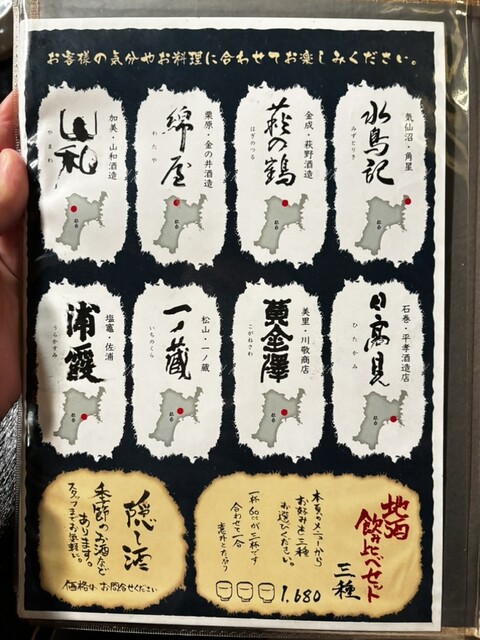 お客様の気分やお料理に合わせてお楽しみください。
気仙沼・角星
水鳥記
みずとりき
金成・萩野酒造
萩の鶴
はぎのつる
栗原・金の井酒造
綿屋
わたや
加美・山和酒造
山和
やまわ
石巻・平孝酒造店
日高見
ひたかみ
美里・川敬商店
黄金澤
こがねさわ
松山・一ノ蔵
一ノ蔵
いちのくら
塩竈・佐浦
浦霞
うらかすみ
地酒
飲み比べセット
三種
本頁のメニューから
お好みを三種
お選びください。
一杯60ccが三杯です
合わせて一合
1,680
隠し酒
季節のお酒など
あります。
スタッフまでお気軽に。
価格は、お問合せください